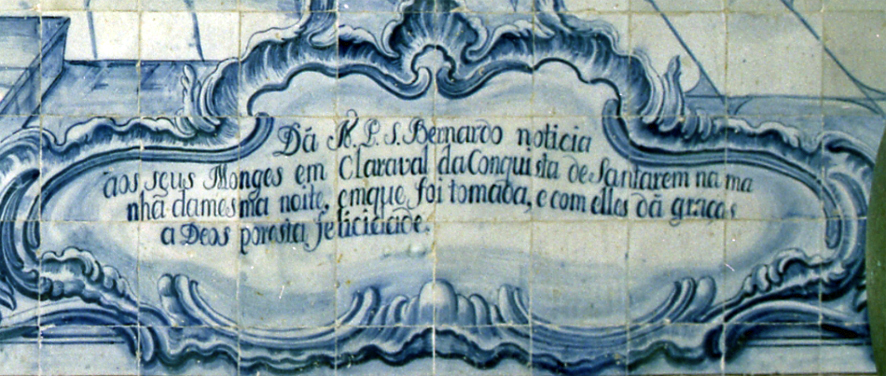 Dá N. P. S. Bernardo noticia
aos seus Monges em Claraval da Conquista de Santarem na ma
nhã damesma noite, emque foi tomada, e com elles dá graças
a Deos poresta felicidade.